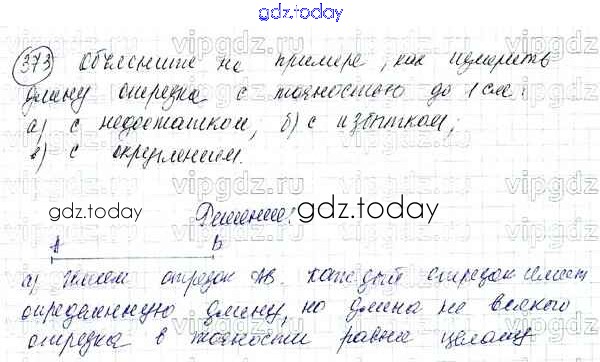 gdz.today
373 Объясните на примере, как измерить
длину отрезка с точностью до 1 см:
а) с недостатком; б) с избытком;
в) с округлением.
gdz.today Решение: gdz.today
A B
а) Имеем отрезок AB. Каждый отрезок имеет
определенную длину, но длина не всякого
отрезка в точности равна целому